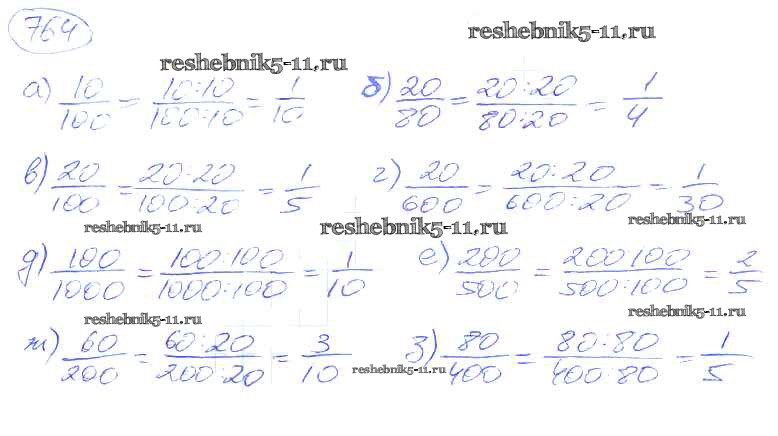 764
reshebnik5-11.ru
reshebnik5-11.ru
а) 10/100 = 10:10/100:10 = 1/10 б) 20/80 = 20:20/80:20 = 1/4
в) 20/100 = 20:20/100:20 = 1/5 г) 20/600 = 20:20/600:20 = 1/30
reshebnik5-11.ru reshebnik5-11.ru reshebnik5-11.ru
д) 100/1000 = 100:100/1000:100 = 1/10 е) 200/500 = 200:100/500:100 = 2/5
reshebnik5-11.ru reshebnik5-11.ru
ж) 60/200 = 60:20/200:20 = 3/10 з) 80/400 = 80:80/400:80 = 1/5
reshebnik5-11.ru